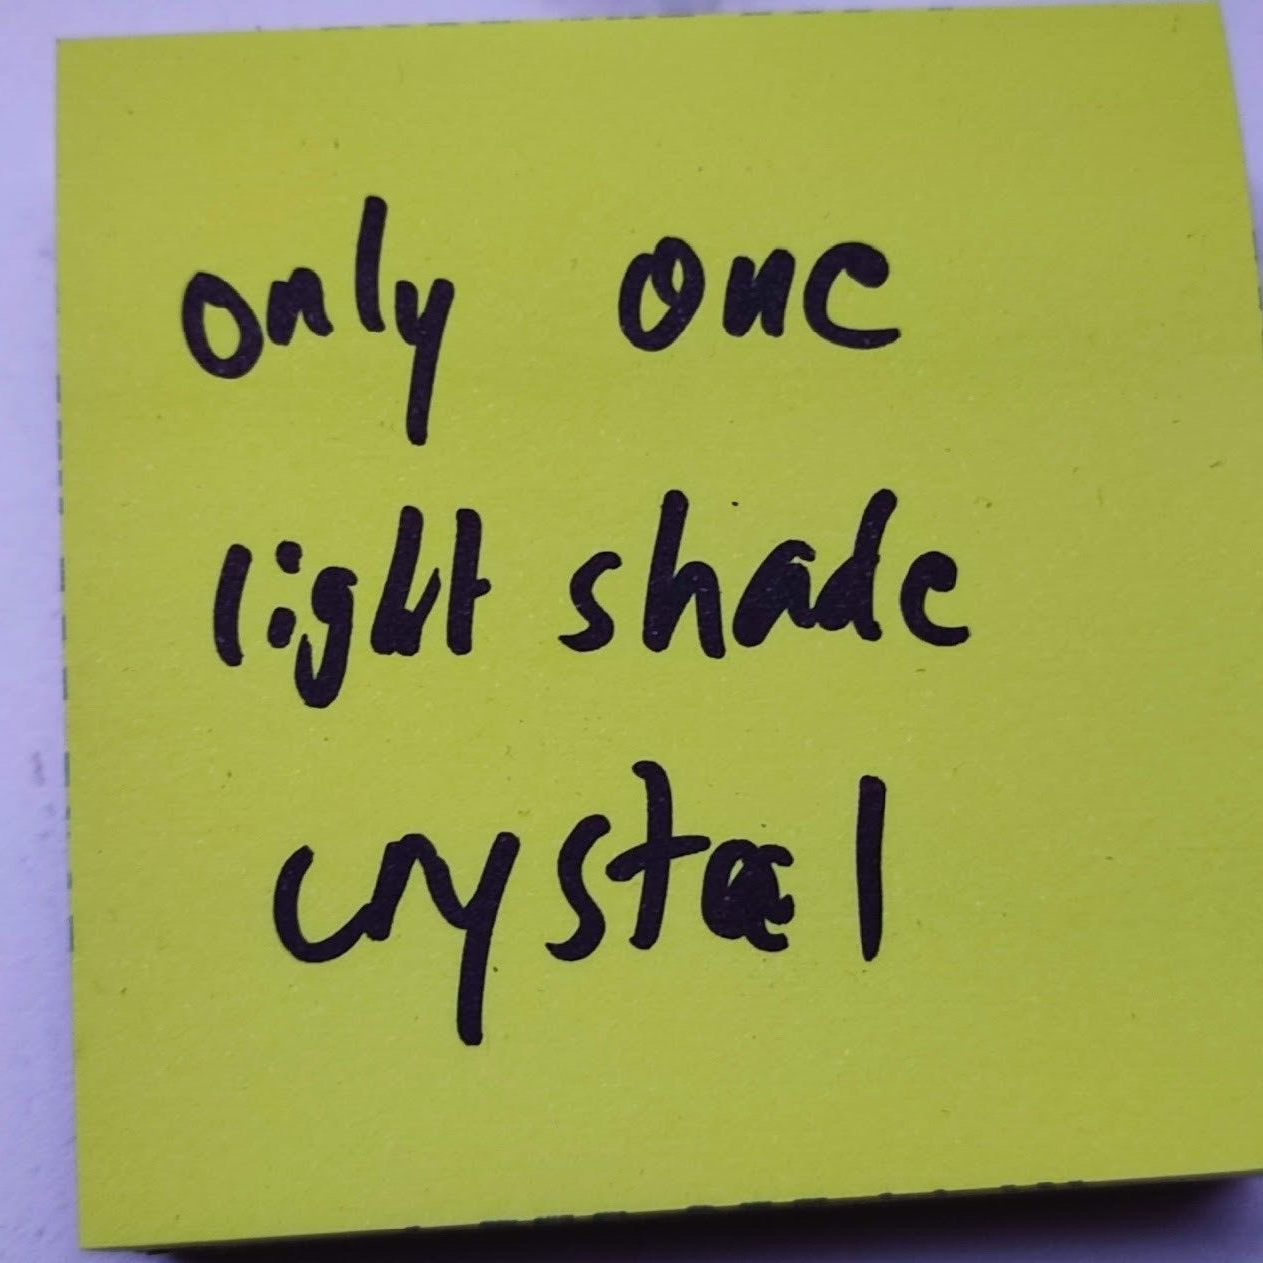 only one
light shade
crystal